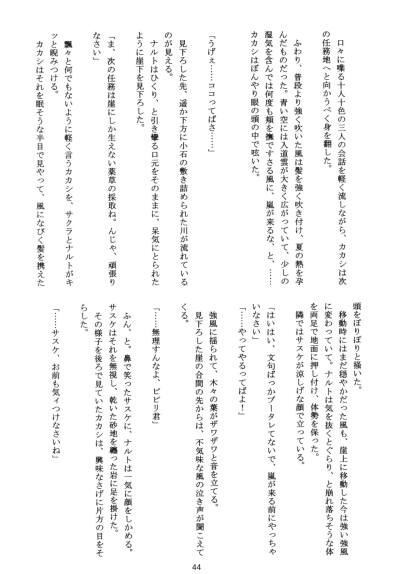 口々に喋る十人十色の三人の会話を軽く流しながら、カカシは次
の任務地へと向かうべく身を翻した。
ふわり、普段より強く吹いた風は髪を強く吹き付け、夏の熱を孕
んだものだった。青い空には入道雲が大きく広がっていて、少しの
湿気を含んでは何度も頬を撫でてすさる風に、嵐が来るな、と、……
カカシはぼんやり眼の頭の中で呟いた。
「うげぇ……ココってばさ……」
見下ろした先、遥か下方に小石の敷き詰められた川が流れている
のが見える。
ナルトはひくり、と引き攣る口元をそのままに、呆気にとられた
ように崖下を見下ろした。
「ま、次の任務は崖にしか生えない薬草の採取ね。んじゃ、頑張り
なさい」
飄々と何でもないように軽く言うカカシを、サクラとナルトがキ
ッと睨みつける。
カカシはそれを眠そうな半目で見やって、風になびく髪を携えた
頭をぽりぽりと掻いた。
移動時にはまだ穏やかだった風も、崖上に移動した今は強い強風
に変わっていて。ナルトは気を抜くとぐらり、と崩れ落ちそうな体
を両足で地面に押し付け、体勢を保った。
隣ではサスケが涼しげな顔で立っている。
「はいはい、文句ばっかブータレてないで、嵐が来る前にやっちゃ
いなさい」
「……やってやるってばよ！」
強風に揺られて、木々の葉がザワザワと音を立てる。
見下ろした崖の合間の先からは、不気味な風の泣き声が聞こえて
くる。
「……無理すんなよ、ビビリ君」
ふん、と、鼻で笑ったサスケに、ナルトは一気に顔をしかめる。
サスケはそれを無視し、乾いた砂地を纏った岩に足を掛けた。
その様子を後ろで見ていたカカシは、興味なさげに片方の目をそ
らした。
「……サスケ、お前も気ィつけなさいね」
44